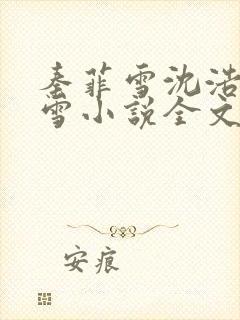 秦菲雪沈浩
雪小説全文
安痕